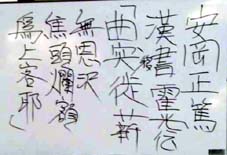 安岡正篤
漢書霍光伝
「曲突徙薪
無恩沢
焦頭爛額
為上客耶」